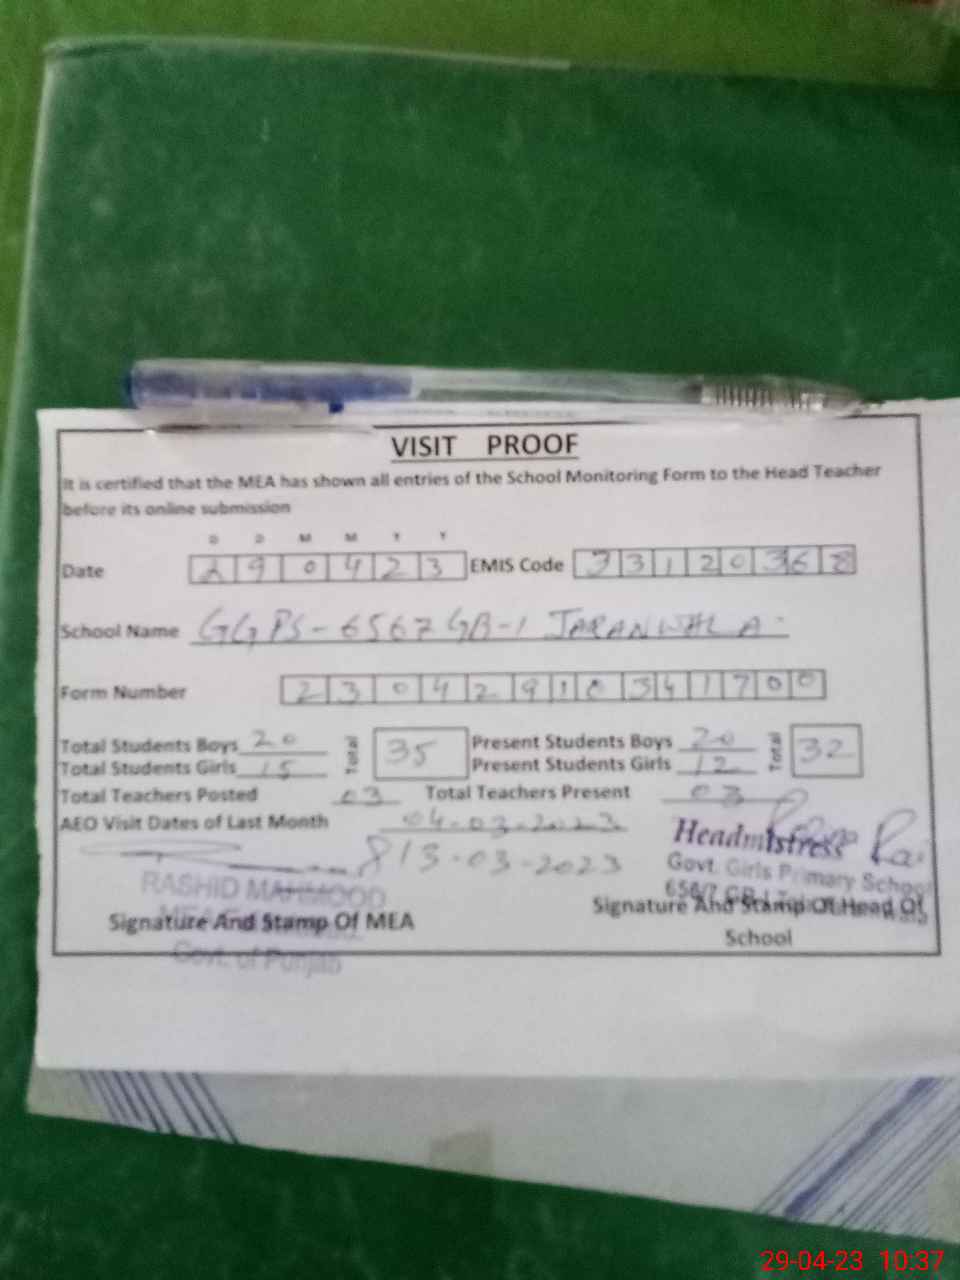 VISIT PROOF
It is certified that the MEA has shown all entries of the School Monitoring Form to the Head Teacher
before its online submission
D D M M Y Y
Date 2 9 0 4 2 3 EMIS Code 3 3 1 2 0 3 6 8
School Name GGPS-656/7 GB-1 JARANWALA
Form Number 2 3 0 4 2 9 1 0 3 4 1 7 0 0
Total Students Boys 20 Total 35 Present Students Boys 20 Total 32
Total Students Girls 15 Present Students Girls 12
Total Teachers Posted 03 Total Teachers Present 03
AEO Visit Dates of Last Month 04-03-2023
&13-03-2023
Headmistress
Govt. Girls Primary School
656/7 GB-1
RASHID MAHMOOD
Signature And Stamp Of MEA
Govt. of Punjab
Signature And Stamp Of Head Of
School
29-04-23 10:37